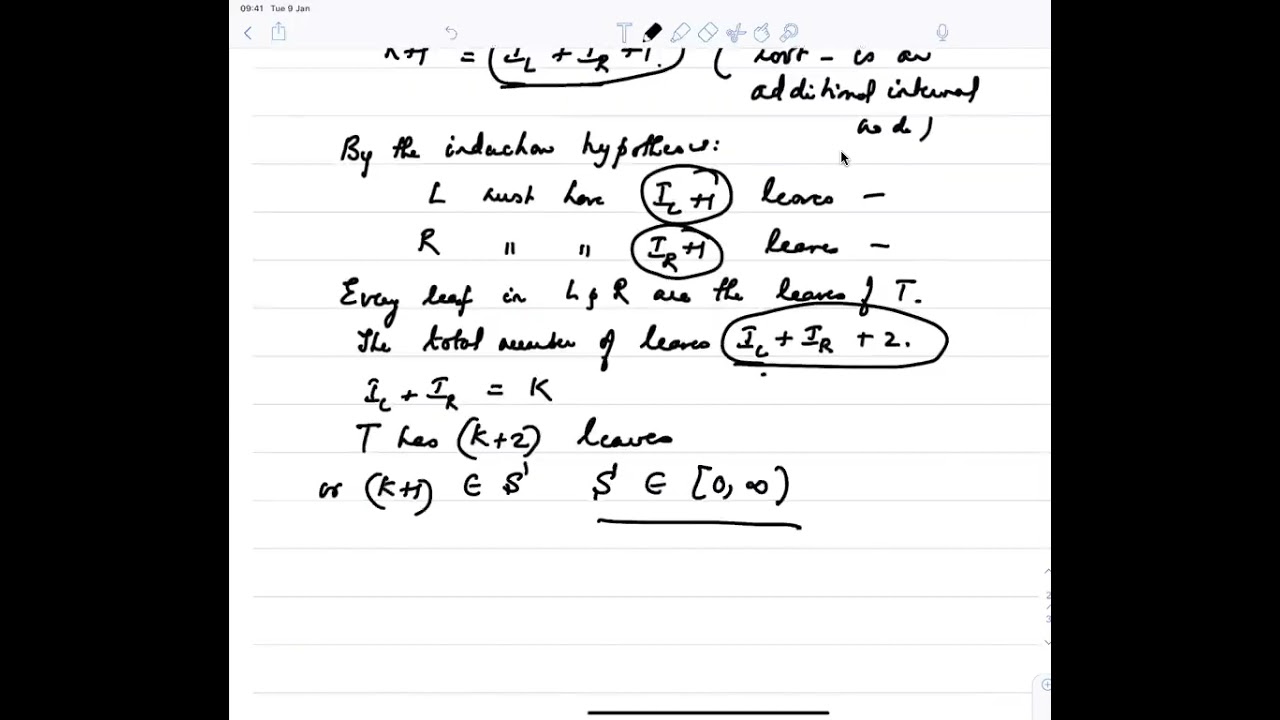 09:41 Tue 9 Jan
K+1 = (I_L + I_R + 1.) ( root - is an
additional internal
node )
By the induction hypothesis:
L must have I_L + 1 leaves -
R " " I_R + 1 leaves -
Every leaf in L & R are the leaves of T.
The total number of leaves I_L + I_R + 2.
I_L + I_R = K
T has (K+2) leaves
or (K+1) ∈ S' S' ∈ [0, ∞)